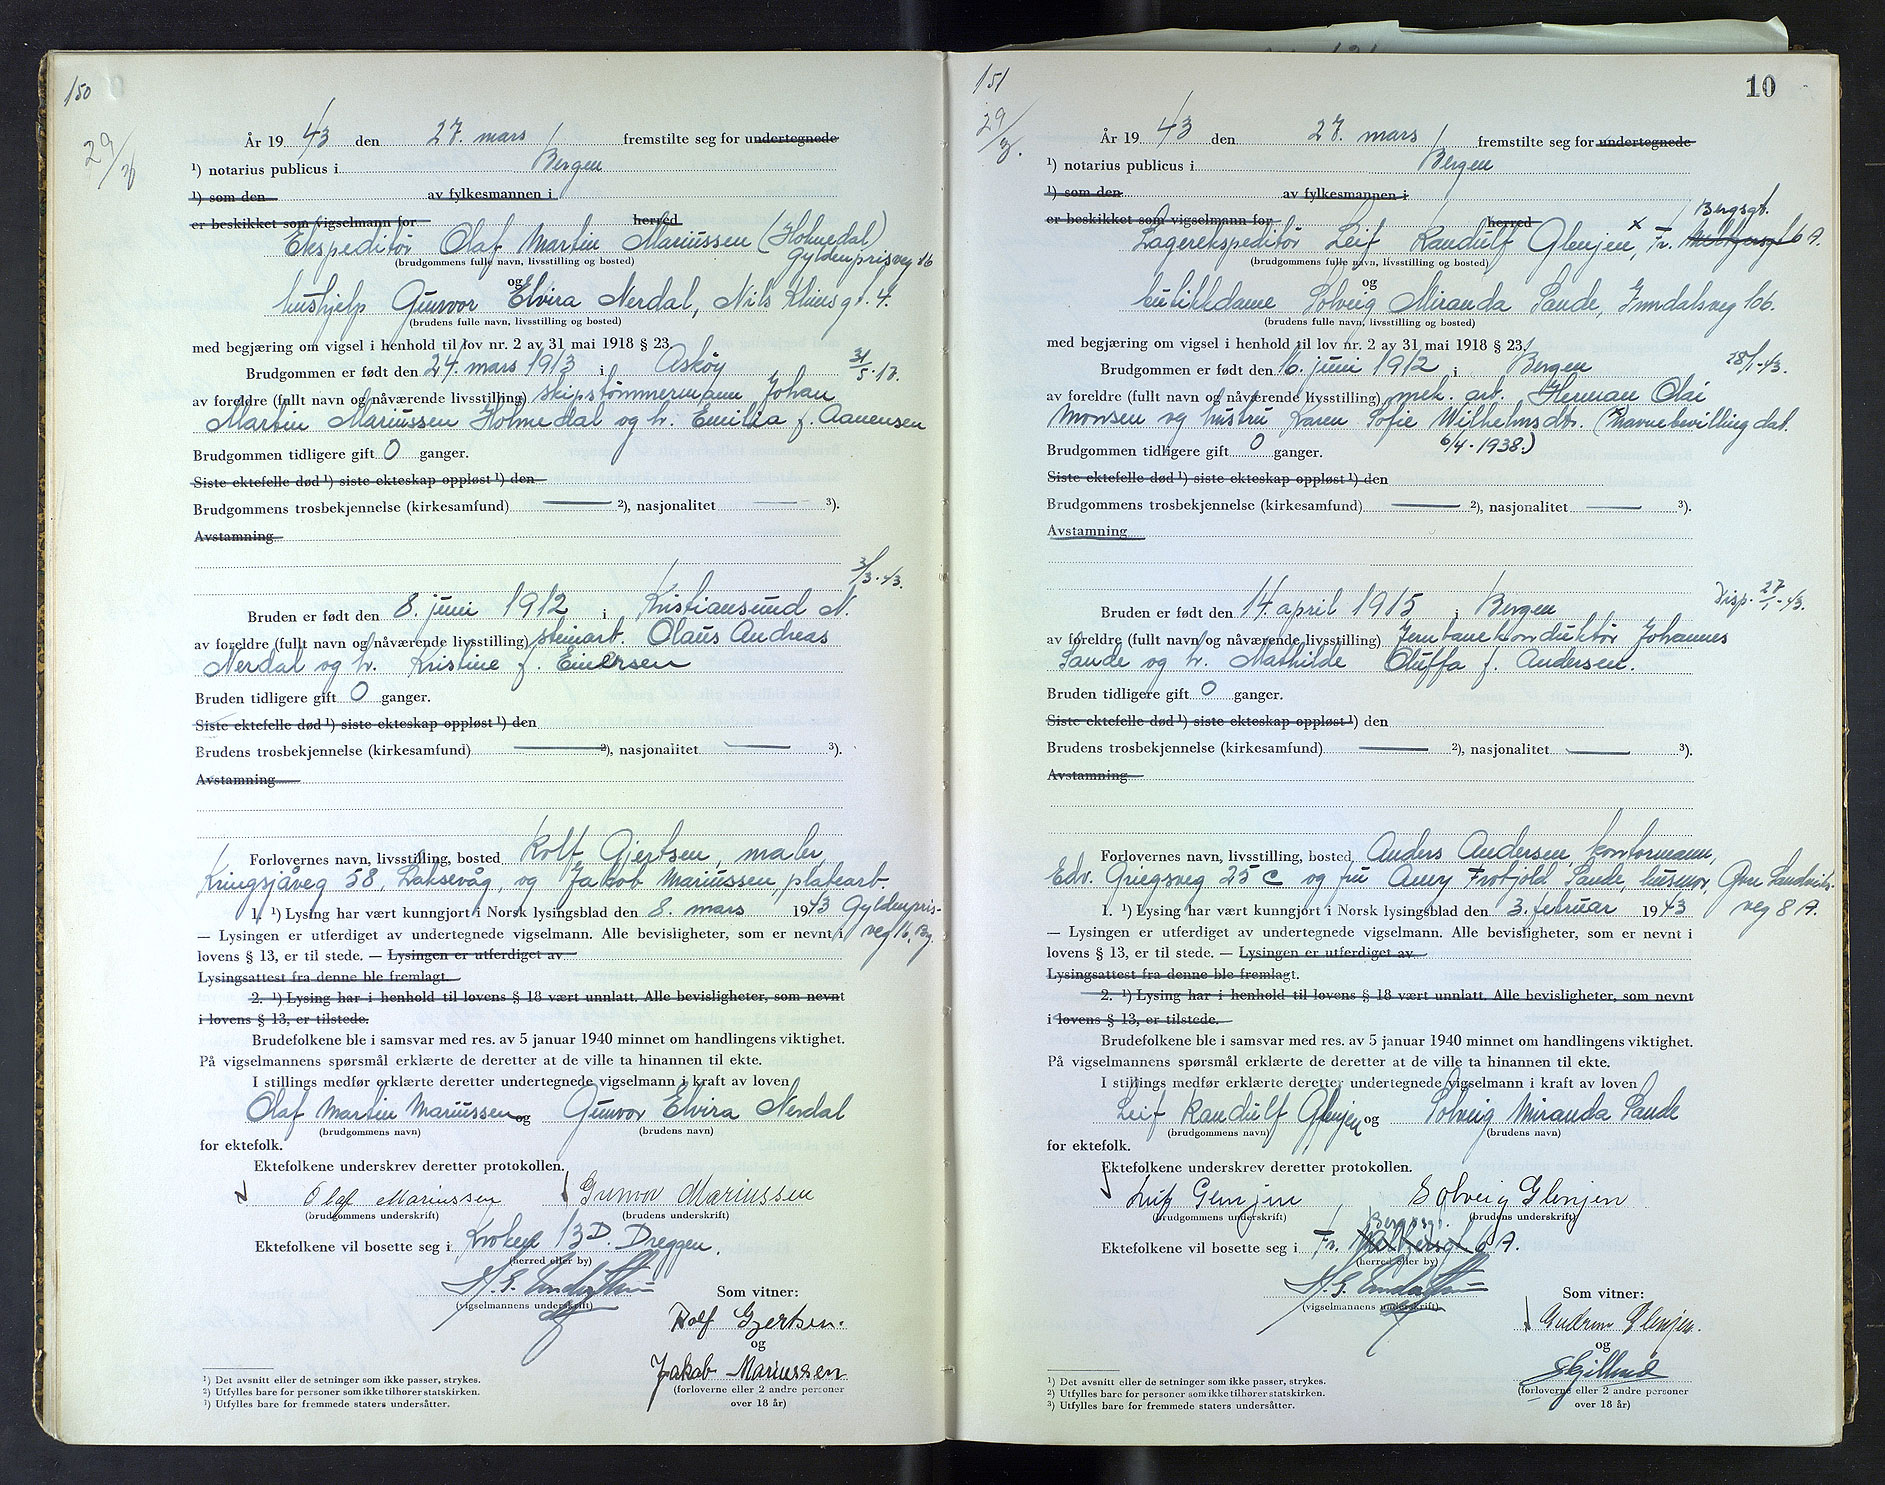 150
29/3
År 19 43 den 27. mars fremstilte seg for undertegnede
¹) notarius publicus i Bergen
¹) som den av fylkesmannen i
er beskikket som vigselmann for herred
Ekspeditør Olaf Martin Mariussen (Holmedal)
Gyldenprisveg 16
(brudgommens fulle navn, livsstilling og bosted)
og
hushjelp Gunvor Elvira Nerdal, Nils Klims gt. 4.
(brudens fulle navn, livsstilling og bosted)
med begjæring om vigsel i henhold til lov nr. 2 av 31 mai 1918 § 23.
Brudgommen er født den 24. mars 1913 i Askøy 31/5.13.
av foreldre (fullt navn og nåværende livsstilling) skipstømmermann Johan
Martin Mariussen Holmedal og h. Emilia f. Aanensen
Brudgommen tidligere gift 0 ganger.
Siste ektefelle død ¹) siste ekteskap oppløst ¹) den
Brudgommens trosbekjennelse (kirkesamfund) ²), nasjonalitet ³).
Avstamning
3/3.43.
Bruden er født den 8. juni 1912 i Kristiansund N.
av foreldre (fullt navn og nåværende livsstilling) steinarb. Olaus Andreas
Nerdal og h. Kristine f. Einersen
Bruden tidligere gift 0 ganger.
Siste ektefelle død ¹) siste ekteskap oppløst ¹) den
Brudens trosbekjennelse (kirkesamfund) ²), nasjonalitet ³).
Avstamning
Forlovernes navn, livsstilling, bosted Rolf Gjertsen, maler,
Kringsjåveg 58, Laksevåg, og Jakob Mariussen, platearb.
1. ¹) Lysing har vært kunngjort i Norsk lysingsblad den 8. mars 1943 Gyldenpris-
— Lysingen er utferdiget av undertegnede vigselmann. Alle bevisligheter, som er nevnt i veg 16, By.
lovens § 13, er til stede. — Lysingen er utferdiget av
Lysingsattest fra denne ble fremlagt
2. ¹) Lysing har i henhold til lovens § 18 vært unnlatt. Alle bevisligheter, som nevnt
i lovens § 13, er tilstede.
Brudefolkene ble i samsvar med res. av 5 januar 1940 minnet om handlingens viktighet.
På vigselmannens spørsmål erklærte de deretter at de ville ta hinannen til ekte.
I stillings medfør erklærte deretter undertegnede vigselmann i kraft av loven
Olaf Martin Mariussen og Gunvor Elvira Nerdal
(brudgommens navn) (brudens navn)
for ektefolk.
Ektefolkene underskrev deretter protokollen.
Olaf Mariussen Gunvor Mariussen
(brudgommens underskrift) (brudens underskrift)
Ektefolkene vil bosette seg i Kroken 13 D. Dreggen.
(herred eller by)
(vigselmannens underskrift)
Som vitner:
Rolf Gjertsen.
og
Jakob Mariussen
(forloverne eller 2 andre personer
over 18 år)
¹) Det avsnitt eller de setninger som ikke passer, strykes.
²) Utfylles bare for personer som ikke tilhører statskirken.
³) Utfylles bare for fremmede staters undersåtter.
151
10
29/3.
År 19 43 den 27. mars fremstilte seg for undertegnede
¹) notarius publicus i Bergen
¹) som den av fylkesmannen i
er beskikket som vigselmann for herred
Bergsgt.
Lagerekspeditør Leif Randulf Glenjen, x Fr. Meltzersgt 6 A.
(brudgommens fulle navn, livsstilling og bosted)
og
butikkdame Solveig Miranda Sande, Inndalsveg 106.
(brudens fulle navn, livsstilling og bosted)
med begjæring om vigsel i henhold til lov nr. 2 av 31 mai 1918 § 23.
Brudgommen er født den 16. juni 1912 i Bergen 28/1-43.
av foreldre (fullt navn og nåværende livsstilling) mek. arb. Herman Olai
Monsen og hustru Karen Sofie Wilhelmsdtr. (x Navnebevilling dat.
Brudgommen tidligere gift 0 ganger. 6/4-1938.)
Siste ektefelle død ¹) siste ekteskap oppløst ¹) den
Brudgommens trosbekjennelse (kirkesamfund) ²), nasjonalitet ³).
Avstamning
Bruden er født den 14. april 1915 i Bergen Disp. 27/1.-43.
av foreldre (fullt navn og nåværende livsstilling) Jernbanekonduktør Johannes
Sande og h. Mathilde Oluffa f. Andersen.
Bruden tidligere gift 0 ganger.
Siste ektefelle død ¹) siste ekteskap oppløst ¹) den
Brudens trosbekjennelse (kirkesamfund) ²), nasjonalitet ³).
Avstamning
Forlovernes navn, livsstilling, bosted Anders Andersen, kontormann,
Edv. Griegsveg 25 c og fru Amy Frotjold Sande, husmor, Øvre Sandviks-
1. ¹) Lysing har vært kunngjort i Norsk lysingsblad den 3. februar 1943 veg 8 A.
— Lysingen er utferdiget av undertegnede vigselmann. Alle bevisligheter, som er nevnt i
lovens § 13, er til stede. — Lysingen er utferdiget av
Lysingsattest fra denne ble fremlagt.
2. ¹) Lysing har i henhold til lovens § 18 vært unnlatt. Alle bevisligheter, som nevnt
i lovens § 13, er tilstede.
Brudefolkene ble i samsvar med res. av 5 januar 1940 minnet om handlingens viktighet.
På vigselmannens spørsmål erklærte de deretter at de ville ta hinannen til ekte.
I stillings medfør erklærte deretter undertegnede vigselmann i kraft av loven
Leif Randulf Glenjen og Solveig Miranda Sande
(brudgommens navn) (brudens navn)
for ektefolk.
Ektefolkene underskrev deretter protokollen.
Leif Glenjen Solveig Glenjen
(brudgommens underskrift) (brudens underskrift)
Bergsgt.
Ektefolkene vil bosette seg i Fr. Meltzersgt 6 A.
(herred eller by)
(vigselmannens underskrift)
Som vitner:
Gudrun Glenjen.
og
(forloverne eller 2 andre personer
over 18 år)
¹) Det avsnitt eller de setninger som ikke passer, strykes.
²) Utfylles bare for personer som ikke tilhører statskirken.
³) Utfylles bare for fremmede staters undersåtter.